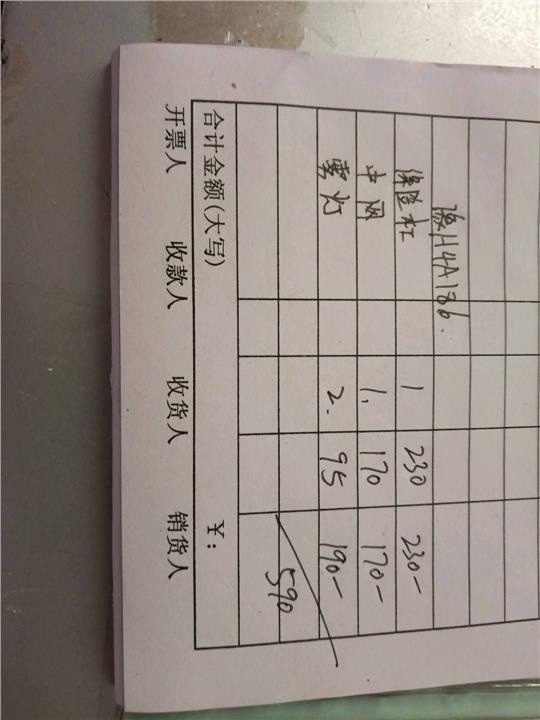 豫H4A186.
保险杠 1 230 230-
中网 1. 170 170-
雾灯 2. 95 190-
590
合计金额(大写) ¥:
开票人 收款人 收货人 销货人